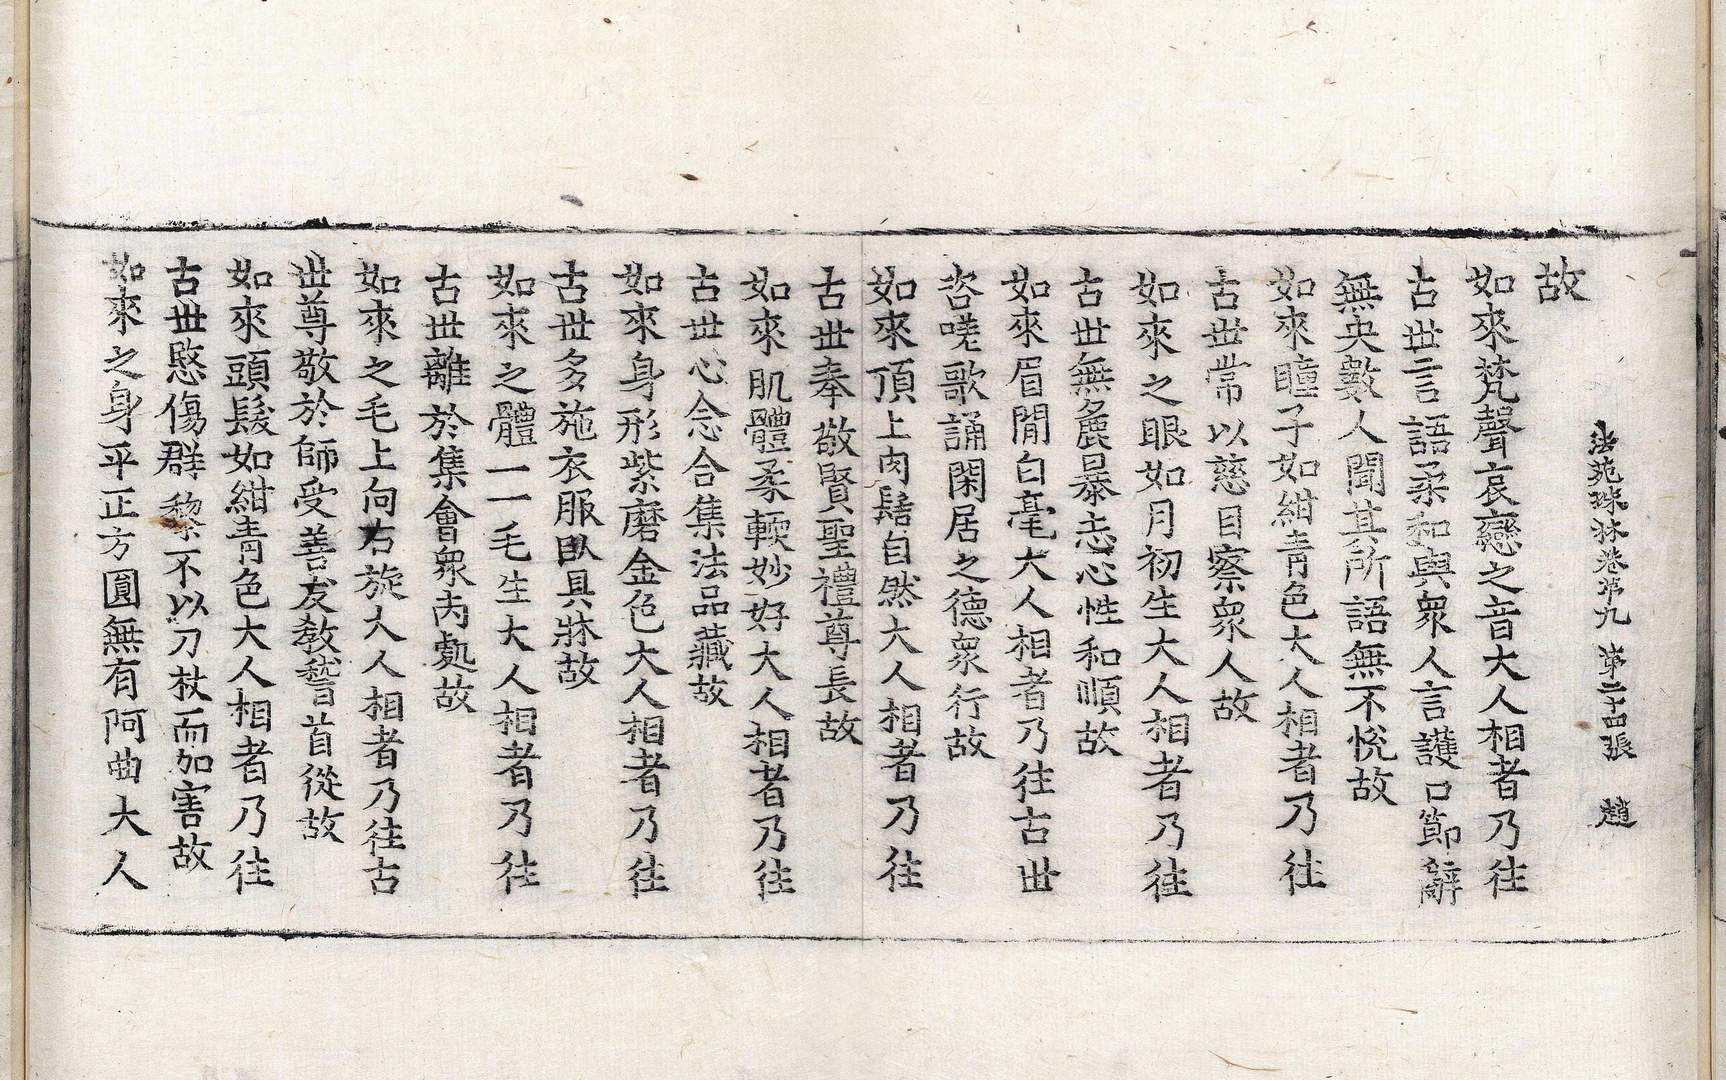 法苑珠林卷第九 第二十四張 趙
故
如來梵聲哀戀之音大人相者乃往
古世言語柔和與衆人言護口節辭
無央數人聞其所語無不悅故
如來瞳子如紺青色大人相者乃往
古世常以慈目察衆人故
如來之眼如月初生大人相者乃往
古世無麁暴恚心性和順故
如來眉間白毫大人相者乃往古世
咨嗟歌誦閑居之德衆行故
如來頂上肉髻自然大人相者乃往
古世奉敬賢聖禮尊長故
如來肌體柔軟妙好大人相者乃往
古世心念合集法品藏故
如來身形紫磨金色大人相者乃往
古世多施衣服臥具牀故
如來之體一一毛生大人相者乃往
古世離於集會衆內處故
如來之毛上向右旋大人相者乃往古
世尊敬於師受善友教稽首從故
如來頭髮如紺青色大人相者乃往
古世愍傷群黎不以刀杖而加害故
如來之身平正方圓無有阿曲大人